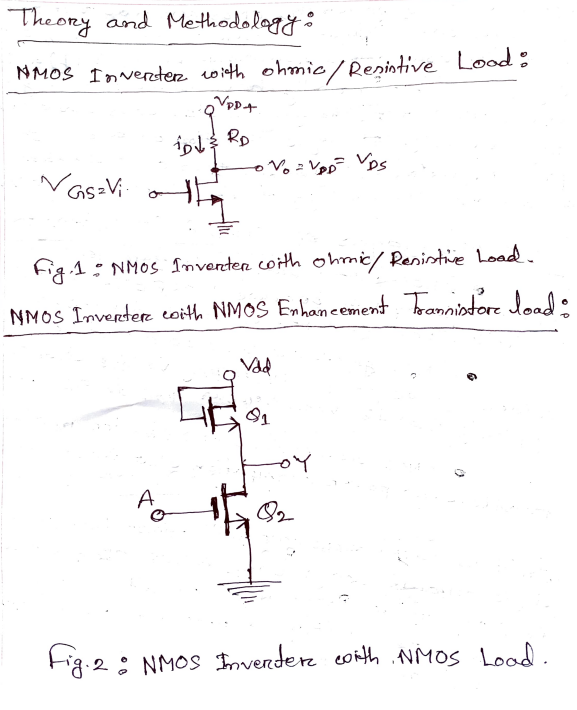 Theory and Methodology:
NMOS Inverter with ohmic/Resistive Load:
VDD+
iD↓ RD
Vo = VDD = VDS
VGS=Vi
Fig.1: NMOS Inverter with ohmic/Resistive Load.
NMOS Inverter with NMOS Enhancement Trannistore load:
Vdd
Q1
Y
A
Q2
Fig.2: NMOS Inverter with NMOS Load.